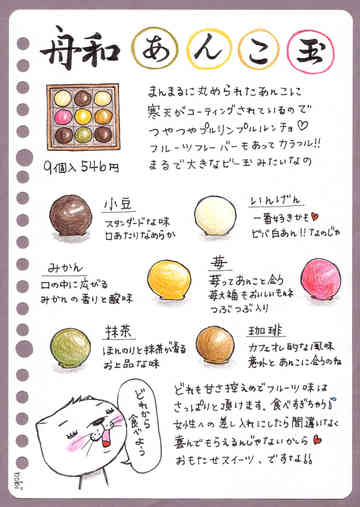 舟和 あんこ玉
まんまるに丸められたあんこに
寒天がコーティングされているので
つやつやプルリンプルルンチョ♡
フルーツフレーバーもあってカラフル!!
まるで大きなビー玉みたいなの
9個入 546円
小豆
スタンダードな味
口あたりなめらか
いんげん
一番好きかも♥
ビバ白あん!!なのじゃ
みかん
口の中に広がる
みかんの香りと酸味
苺
苺ってあんこと合う
苺大福もおいしいもんね
つぶつぶ入り
抹茶
ほんのりと抹茶が香る
お上品な味
珈琲
カフェオレ的な風味
意外とあんこに合うのね
どれから
食べやよう
どれも甘さ控えめでフルーツ味は
さっぱりと頂けます。食べすぎちゃう
女性への差し入れにしたら間違いなく
喜んでもらえるんじゃないかしら♥
おもたせスイーツ、ですよ